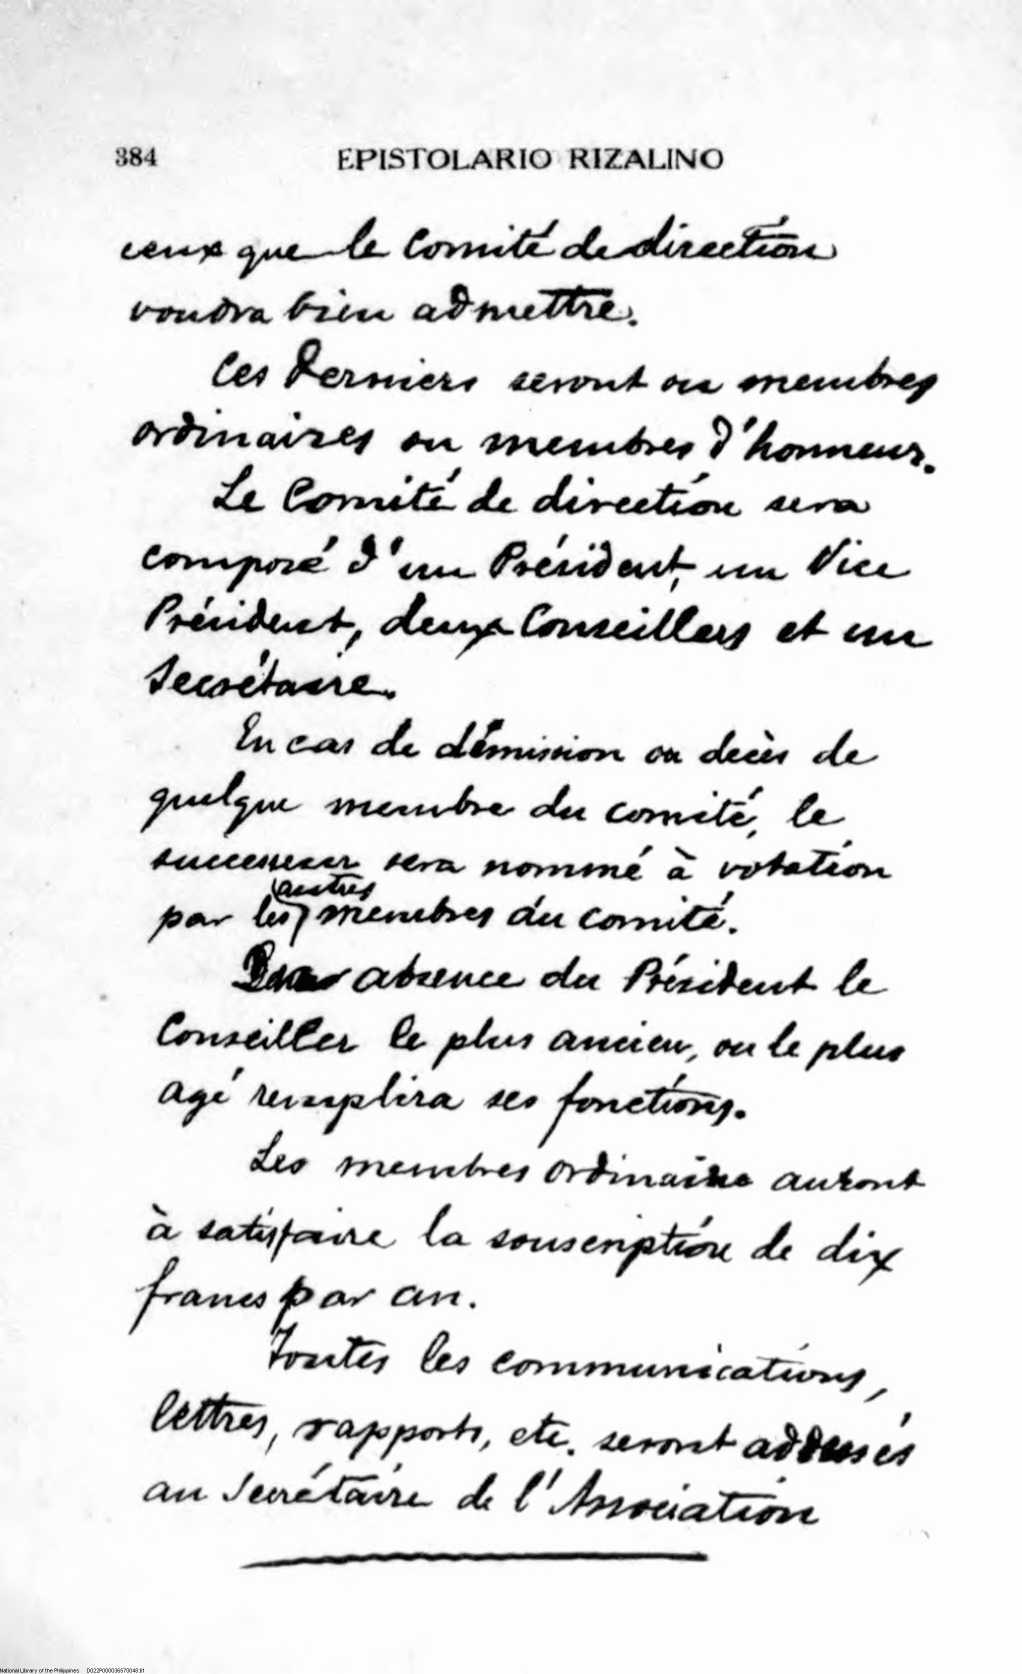 384 EPISTOLARIO RIZALINO
ceux que le Comité de direction
voudra bien admettre.
Ces derniers seront ou membres
ordinaires ou membres d'honneur.
Le Comité de direction sera
composé d'un Président, un Vice
Président, deux Conseillers et un
Secrétaire.
En cas de démission ou decès de
quelque membre du comité, le
successeur sera nommé à votation
autres
par les membres du comité.
absence du Président le
Conseiller le plus ancien, ou le plus
agé remplira ses fonctions.
Les membres ordinaire auront
à satisfaire la souscription de dix
francs par an.
Toutes les communications,
lettres, rapports, etc. seront addessés
au Secrétaire de l'Association
National Library of the Philippines